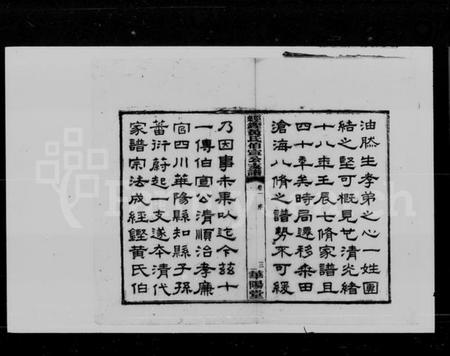 油肰生孝弟之心一姓團
結之堅可概見也清光緒
十八年壬辰七脩家譜且
四十年矣時局遷移桑田
滄海八脩之譜勢不可緩
經鏗黃氏伯宣公支譜
卷一
三
華陽堂
乃因事未果以迄今茲十
一傳伯宣公清順治孝廉
官四川華陽縣知縣子孫
蕃衍蔚起一支遂本清代
家譜宗法成經鏗黃氏伯